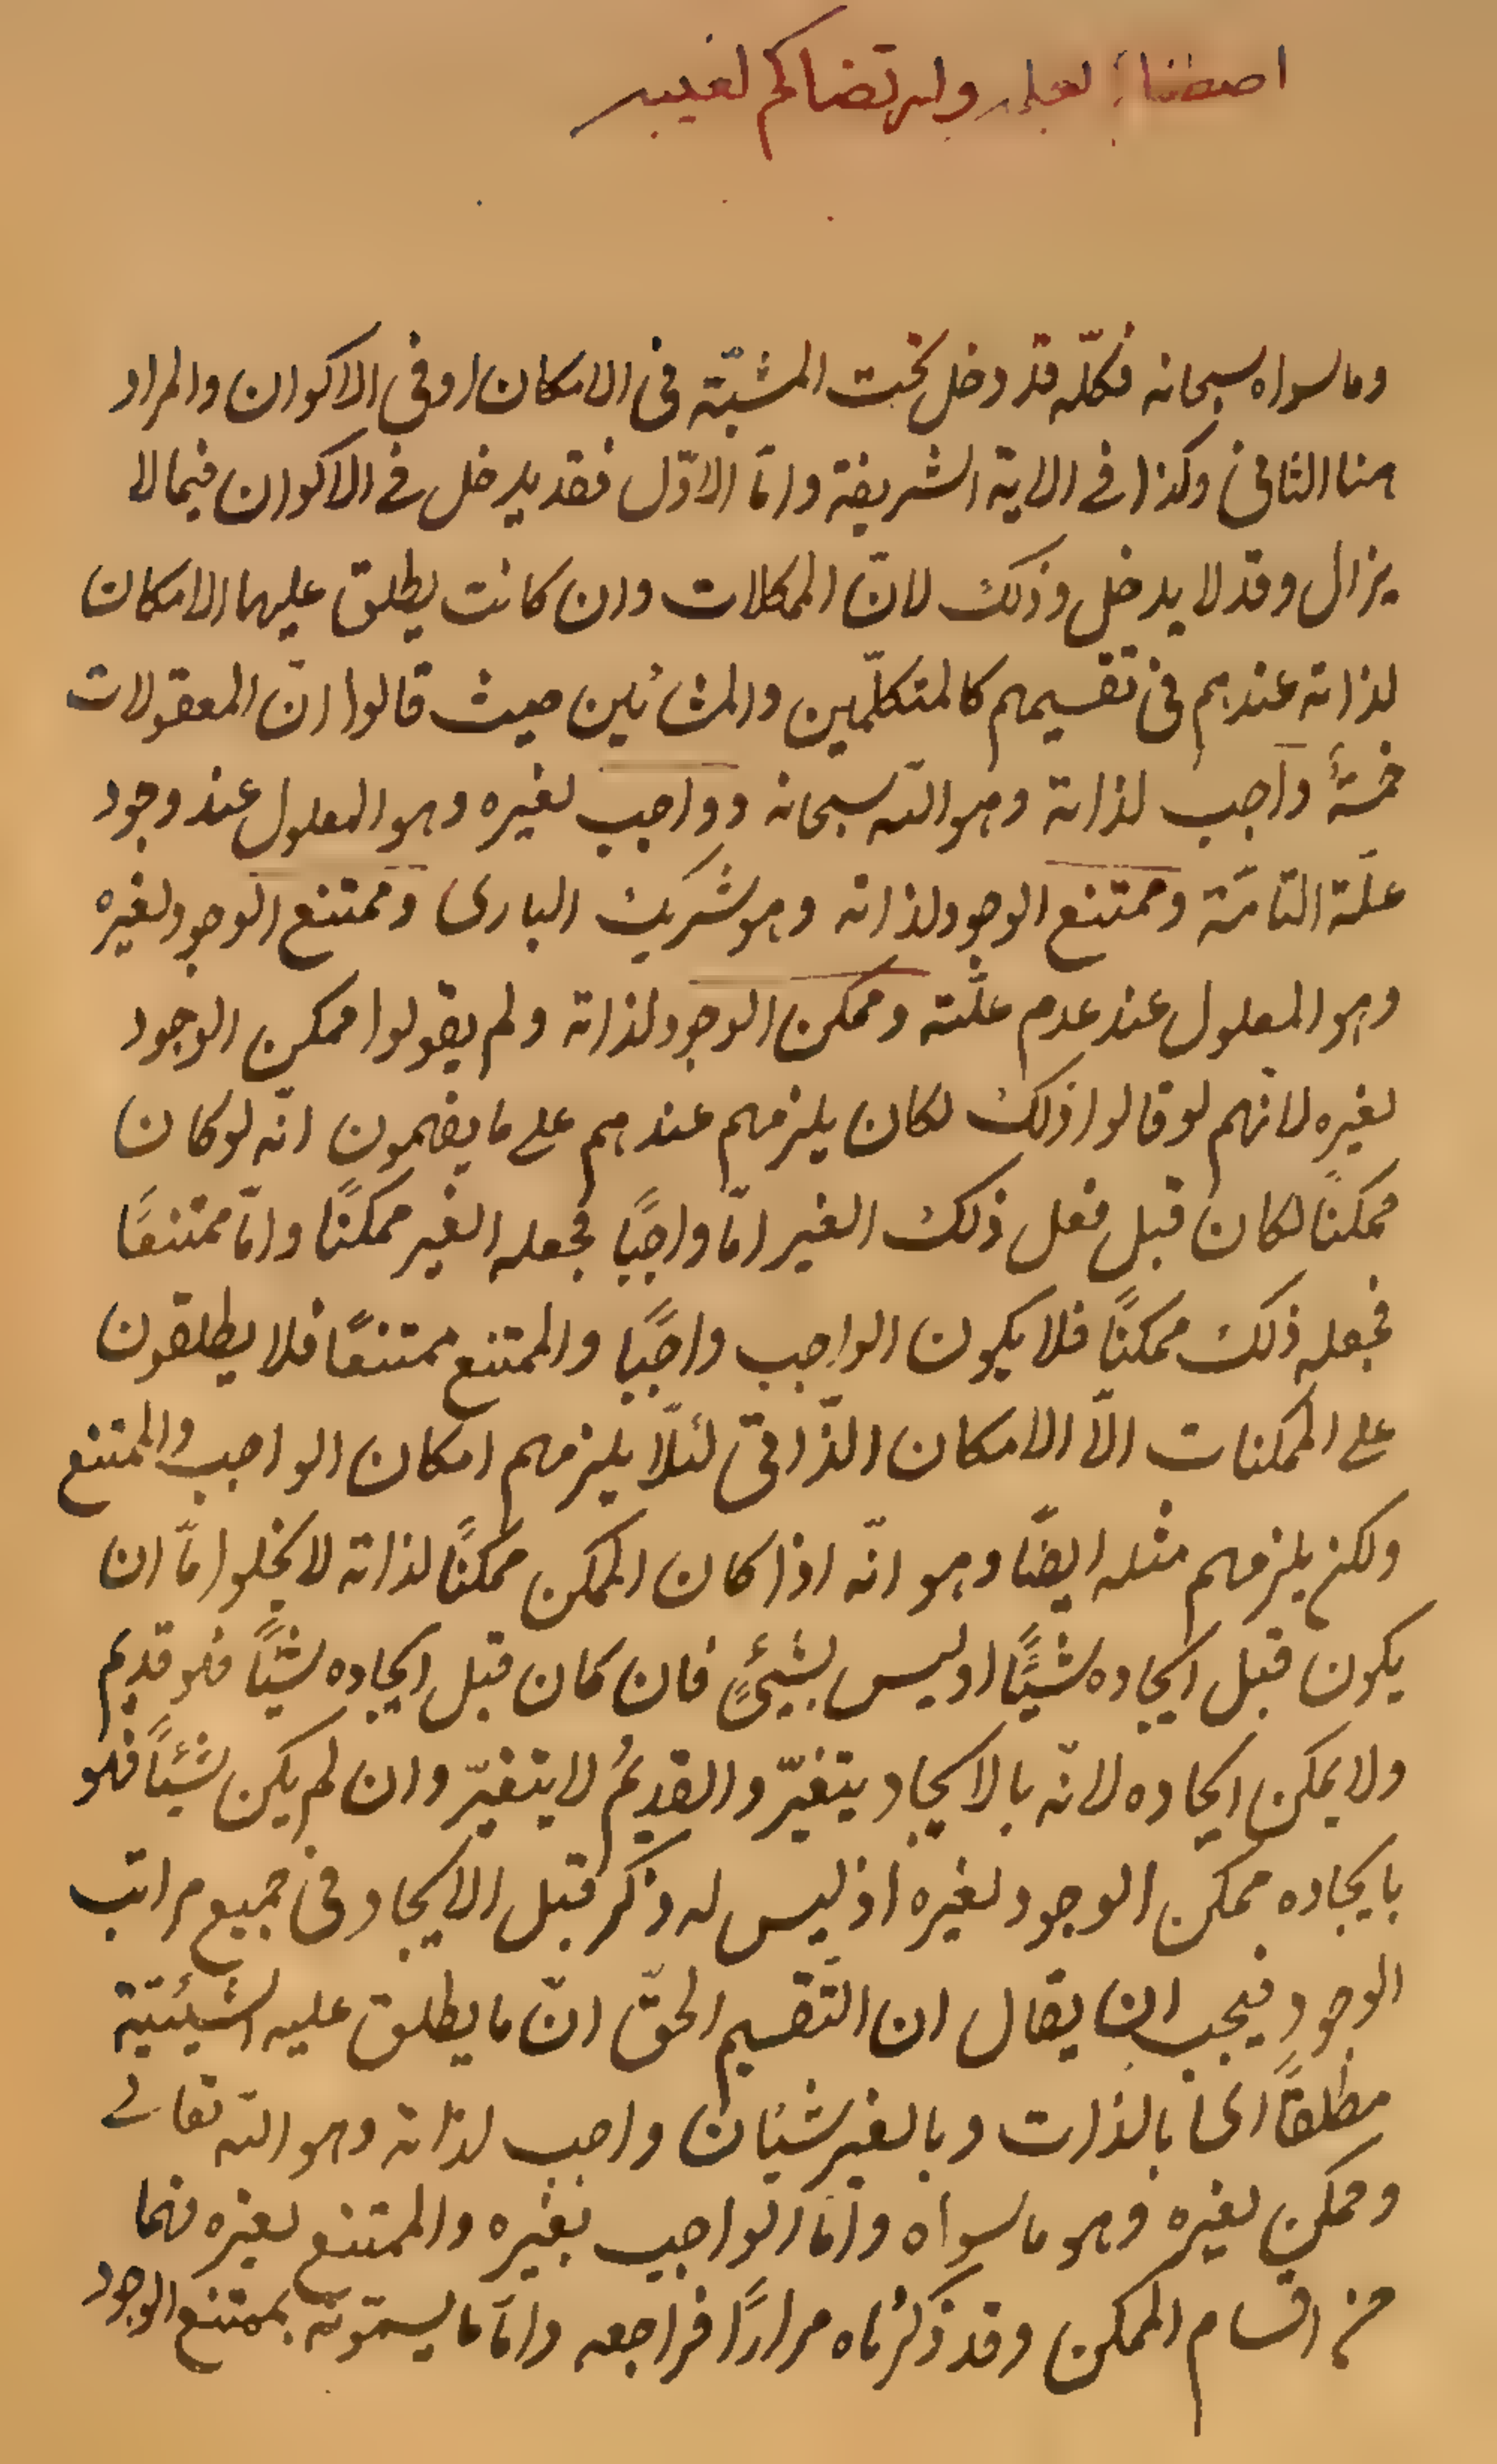 اصطفاكم لعلمه وارتضاكم لغيبه
وما سواه سبحانه فكلّه قد دخل تحت المشيّة فى الامكان او فى الاكوان والمراد
هنا الثانى وكذا فى الاية الشريفة وامّا الاوّل فقد يدخل فى الاكوان فيما لا
يزال وقد لا يدخل وذلك لانّ الممكلات وان كانت يطلق عليها الامكان
لذاته عندهم فى تقسيمهم كالمتكلّمين والمشائين حيث قالوا انّ المعقولات
خمسةٌ واجب لذاته وهو اللّه سبحانه وواجب لغيره وهو المعلول عند وجود
علّته التامّة وممتنع الوجود لذاته وهو شريك البارى وممتنع الوجود لغيره
وهو المعلول عند عدم علّته وممكن الوجود لذاته ولم يقولوا ممكن الوجود
لغيره لانهم لو قالوا ذلك لكان يلزمهم عندهم على ما يفهمون انّه لو كان
ممكنًا لكان قبل فعل ذلك الغير امّا واجبًا فجعله الغير ممكنًا وامّا ممتنعًا
فجعله ذلك ممكنًا فلا يكون الواجب واجبًا والممتنع ممتنعًا فلا يطلقون
على الممكنات الّا الامكان الذّاتىّ لئلّا يلزمهم امكان الواجب والممتنع
ولكن يلزمهم مثله ايضًا وهو انّه اذا كان الممكن ممكنًا لذاته لا يخلوا امّا ان
يكون قبل ايجاده شيئًا او ليس بشيئٍ فان كان قبل ايجاده شيئًا فهو قديم
ولا يمكن ايجاده لانّه بالايجاد يتغيّر والقديمُ لا يتغيّر وان لم يكن شيئًا فهو
بايجاده ممكن الوجود لغيره اذ ليس له ذكر قبل الايجاد فى جميع مراتب
الوجود فيجب ان يقال ان التّقسيم الحقّ انّ ما يطلق عليه الشيئيّة
مطلقًا اى بالذات وبالغير شيئان واجب لذاته وهو اللّه تعالى
وممكن لغيره وهو ما سواه وامّا الواجب بغيره والممتنع لغيره فهما
من اقسام الممكن وقد ذكرناه مرارًا فراجعه وامّا ما يسمّونه بممتنع الوجود